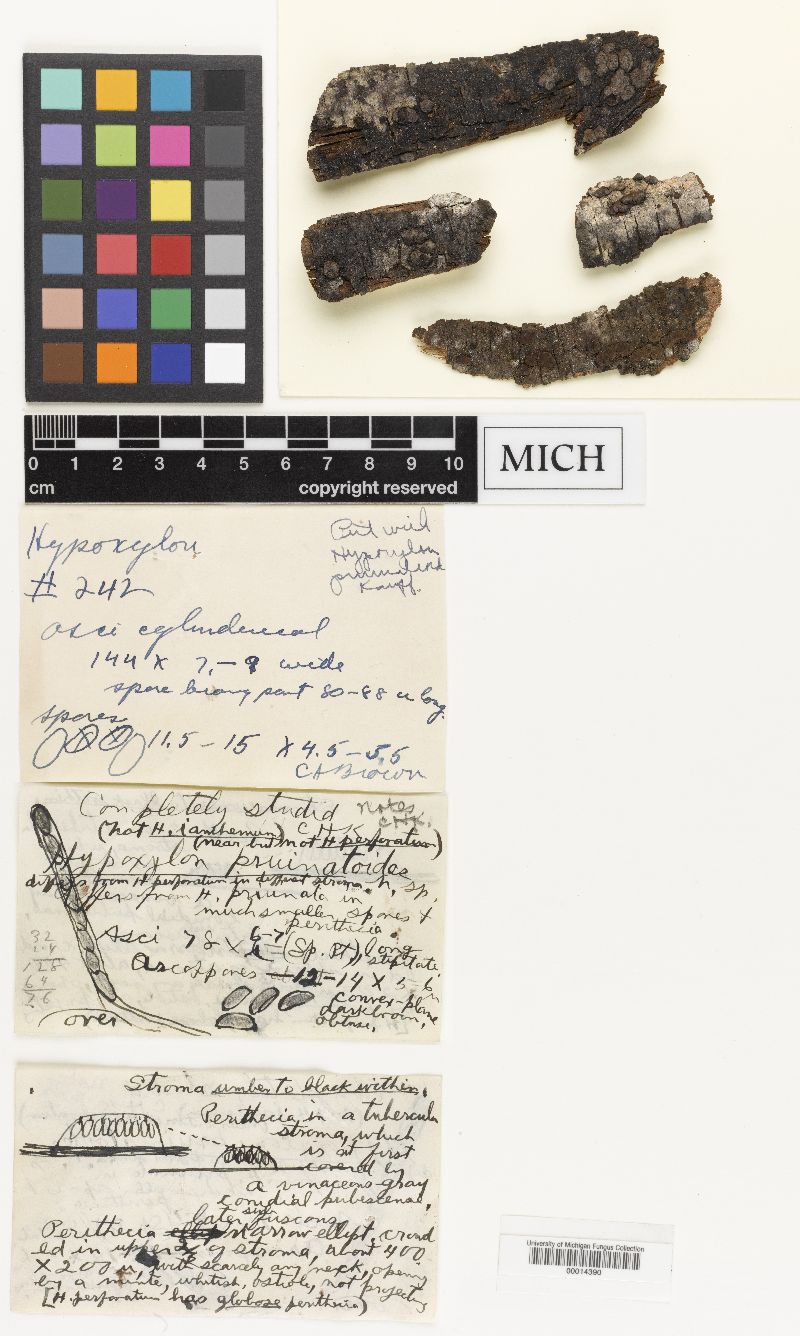 0 1 2 3 4 5 6 7 8 9 10
cm copyright reserved
MICH
Hypoxylon
# 242
Put with
Hypoxylon
Kauff.
asci cylinderical
144 x 7,-9 wide
spore bearing part 80-88 u long.
spores
11.5-15 x 4.5-5.5
CABrown
Completely studid
notes
CHK.
(not H. ianthemum) CHK
(near but not H perforatum)
Hypoxylon pruinatoides
differs from H perforatum in diffust stroma. n. sp.
differs from H. pruinata in
much smaller spores &
perithecia.
Asci 78 x 6-7 (sp. pt), long
stipitate
32
128
64
Ascospores 12-14 x 5-6
convex-plane
dark brown,
obtuse.
over
Stroma umber to black within.
Perithecia in a tubercula
stroma, which
is at first
covered by
a vinaceous-gray
conidial pubescence,
later fuscous,
Perithecia narrow ellipt. crowd
ed in upper of stroma, about 400
x 200 u, with scarcely any neck, opening
by a minute, whitish, ostiole, not projecting
[H. perforatum has globose perithecia)
University of Michigan Fungus Collection
00014390